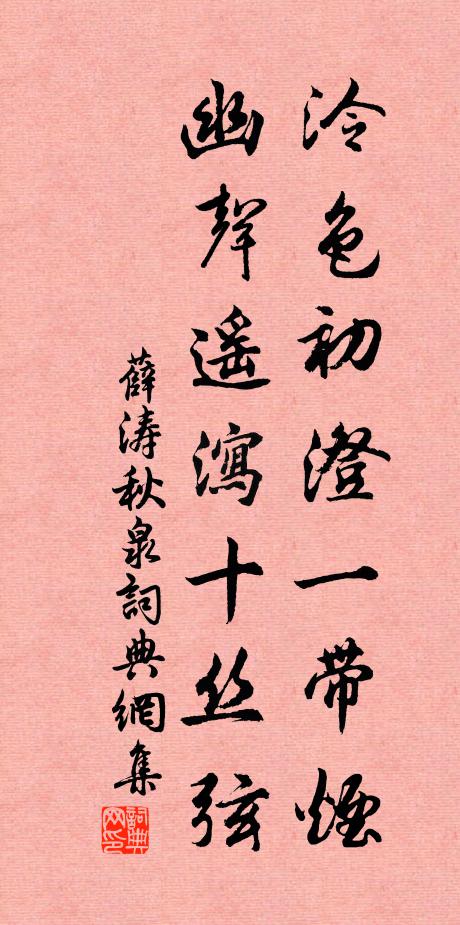 泠色初澄一带烟
幽聲遥瀉十丝弦
薛涛秋泉詞典網集
詞典网印